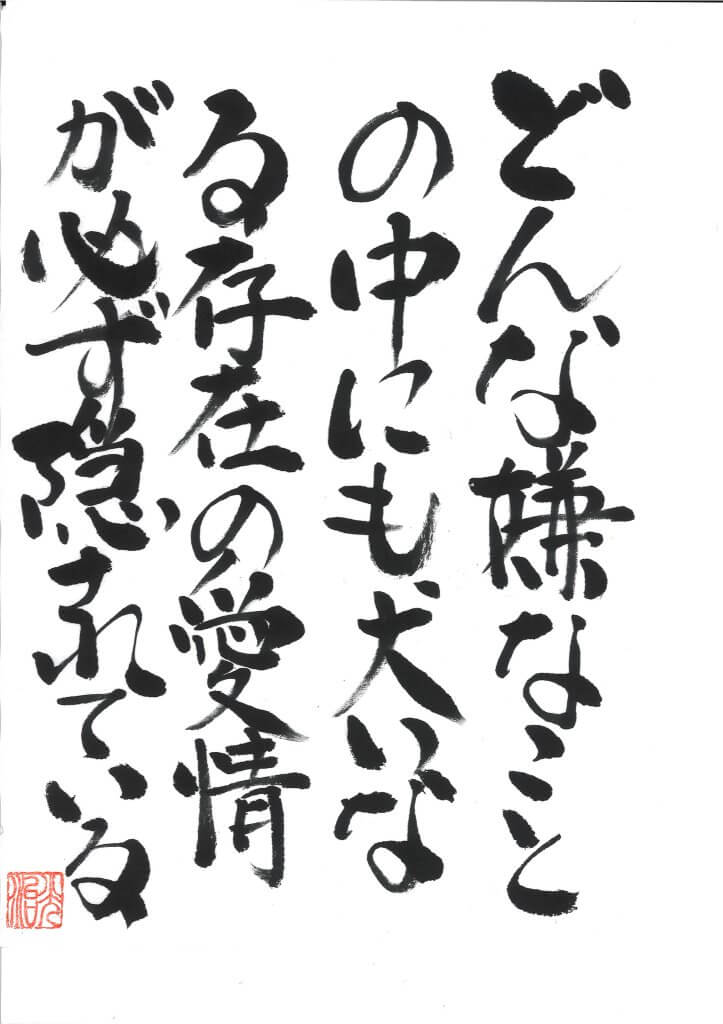 どんな嫌なこと
の中にも犬いな
る存在の愛情
が必ず隠されている